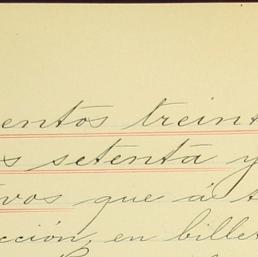 entos treint
s setenta y
vos que á t
cción, en billet